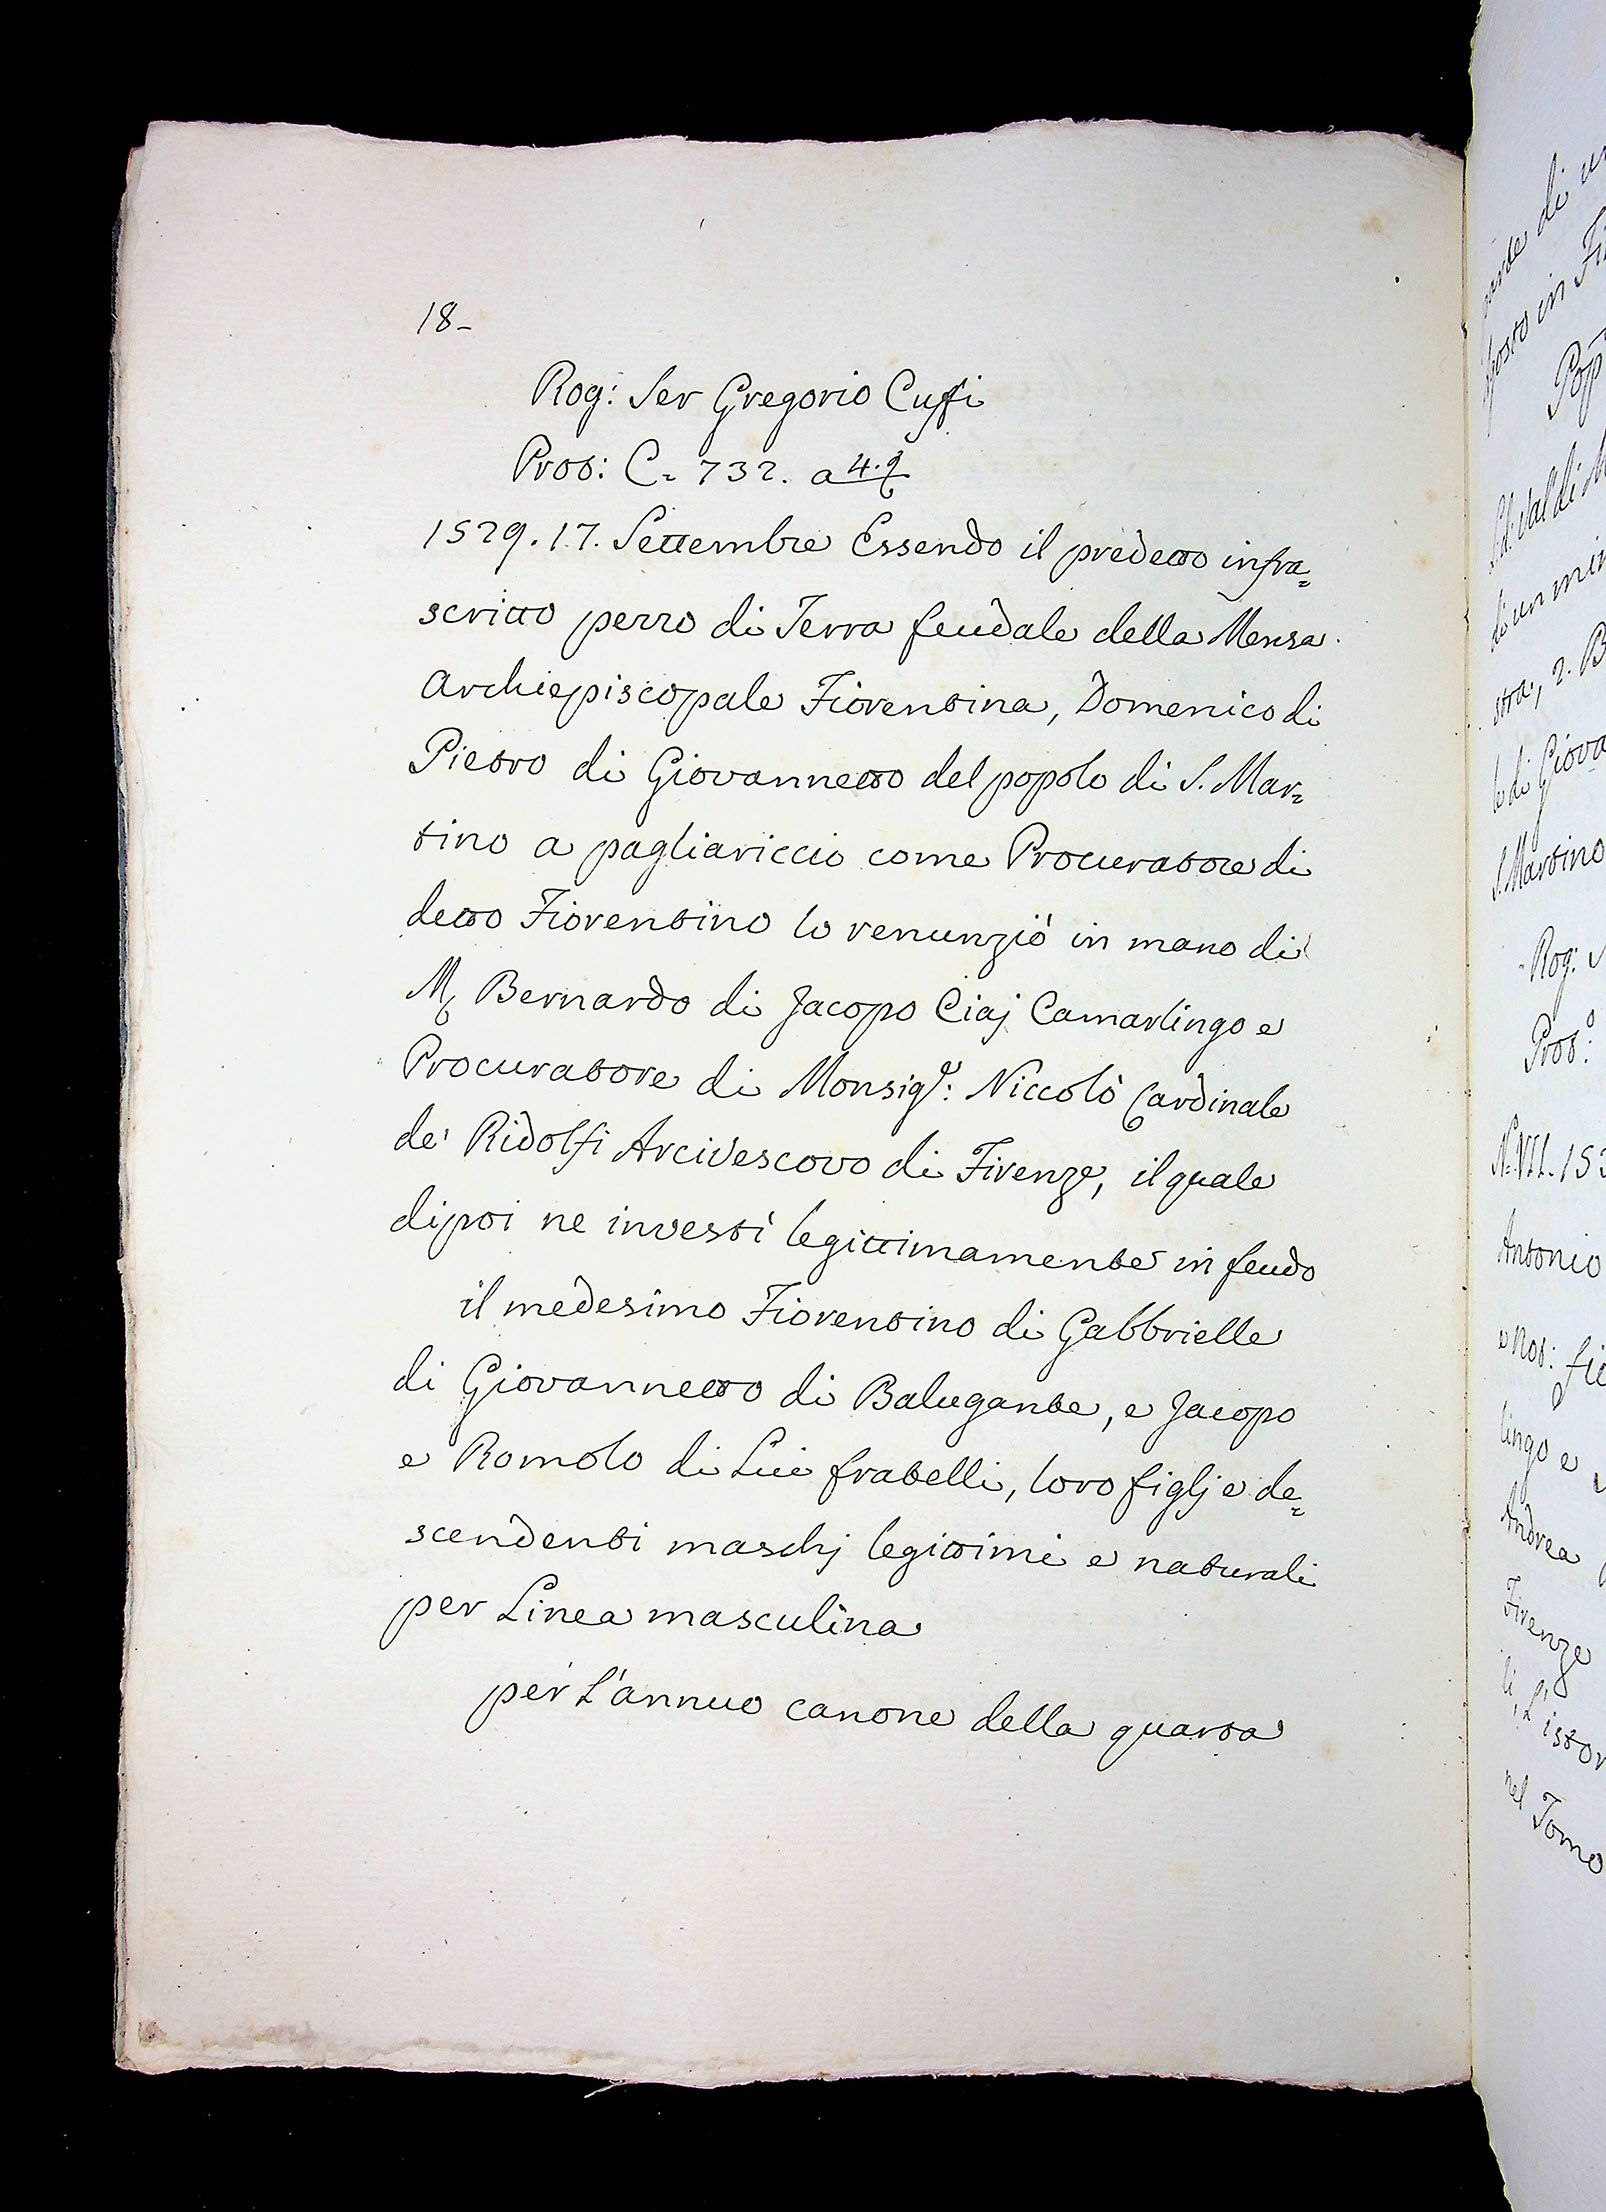 18-
Rog: Ser Gregorio Cuffi
Prot: C= 732. a 4.
1529. 17. Settembre Essendo il predetto infra=
scritto pezzo di Terra feudale della Mensa
Archiepiscopale Fiorentina, Domenico di
Pietro di Giovannetto del popolo di S. Mar=
tino a pagliariccio come Procuratore di
detto Fiorentino lo renunziò in mano di
M Bernardo di Jacopo Ciaj Camarlingo e
Procuratore di Monsigre: Niccolò Cardinale
de' Ridolfi Arcivescovo di Firenze, il quale
dipoi ne investì legittimamente in feudo
il medesimo Fiorentino di Gabbrielle
di Giovannetto di Balugante, e Jacopo
e Romolo di Lui fratelli, loro figlj e de=
scendenti maschj legittimi e naturali
per Linea masculina
per L'annuo canone della quarta
posto in
S. Martino
Rog:
Prot:
N. VII. 15
Antonio
e Not:
lingo e
Andrea
Firenze
nel Tomo